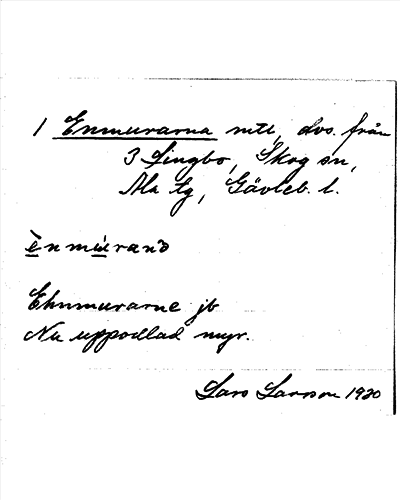 1 Enmurarna mtl, dvs. från
3 Lingbo, Skog sn,
Ala tg, Gävleb. l.
ènmùranɔ
Ehnmurarne jb
Nu uppodlad myr.
Lars Larsson 1920